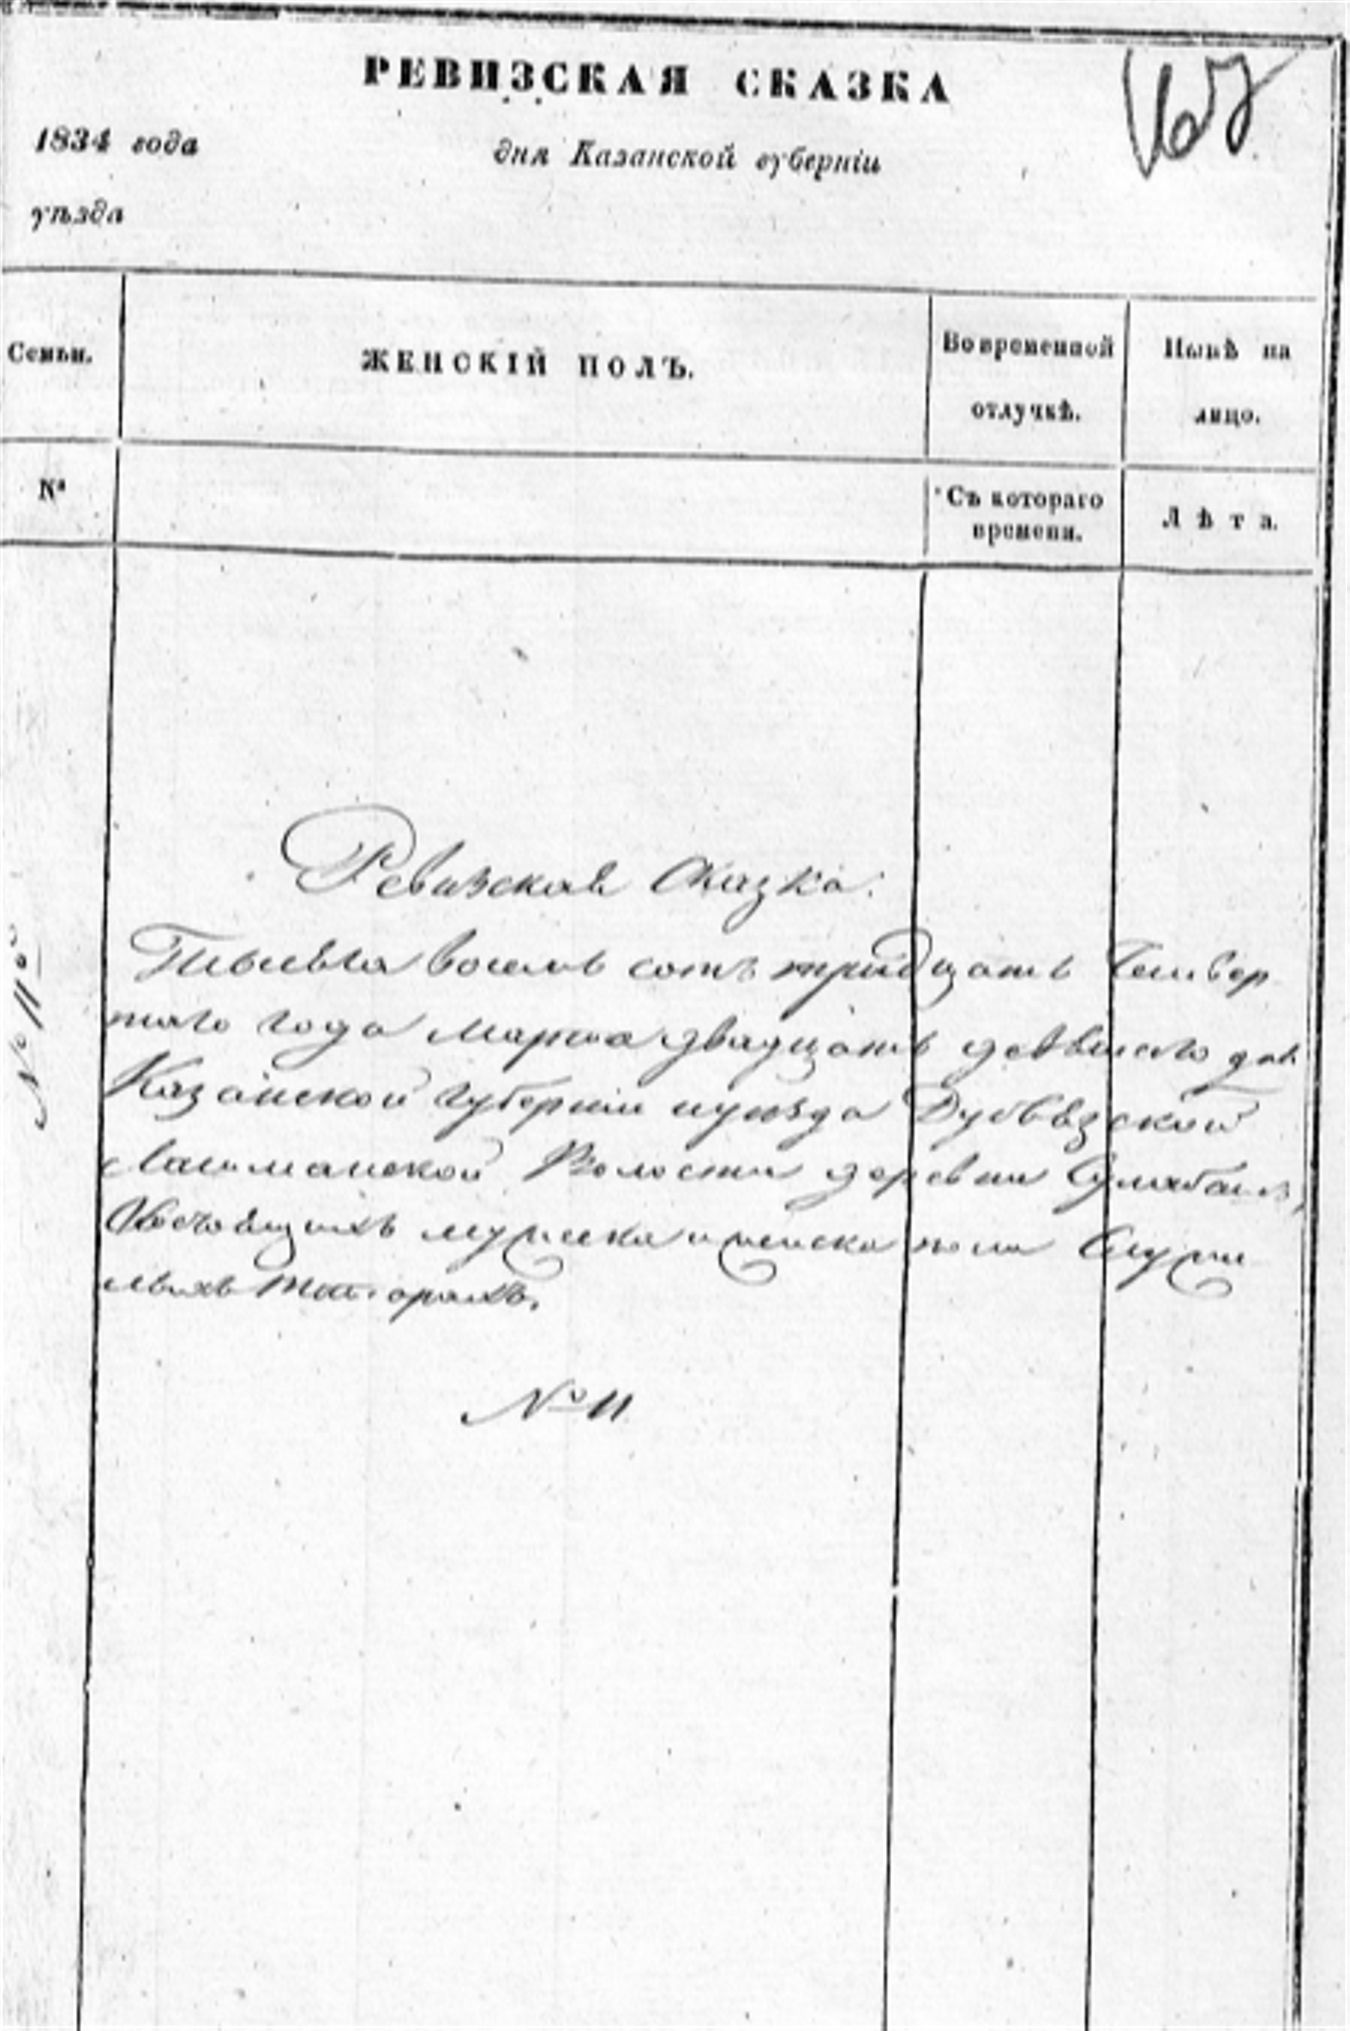 РЕВИЗСКАЯ СКАЗКА
167
1834 года
дня Казанской губерніи
уѣзда
Семьи.
ЖЕНСКІЙ ПОЛЪ.
Во временной
отлучкѣ.
Нынѣ на
лицо.
№
Съ котораго
времени.
Лѣта.
№ 11й
Ревизская Сказка.
Тысяча восемь сотъ тридцать Четвер
таго года марта двадцать девятаго дня
Казанской губерніи и уѣзда Дубъязской
Лашманской Волости деревни
мужска и женска пола Служи
лыхъ Татарахъ.
№ 11